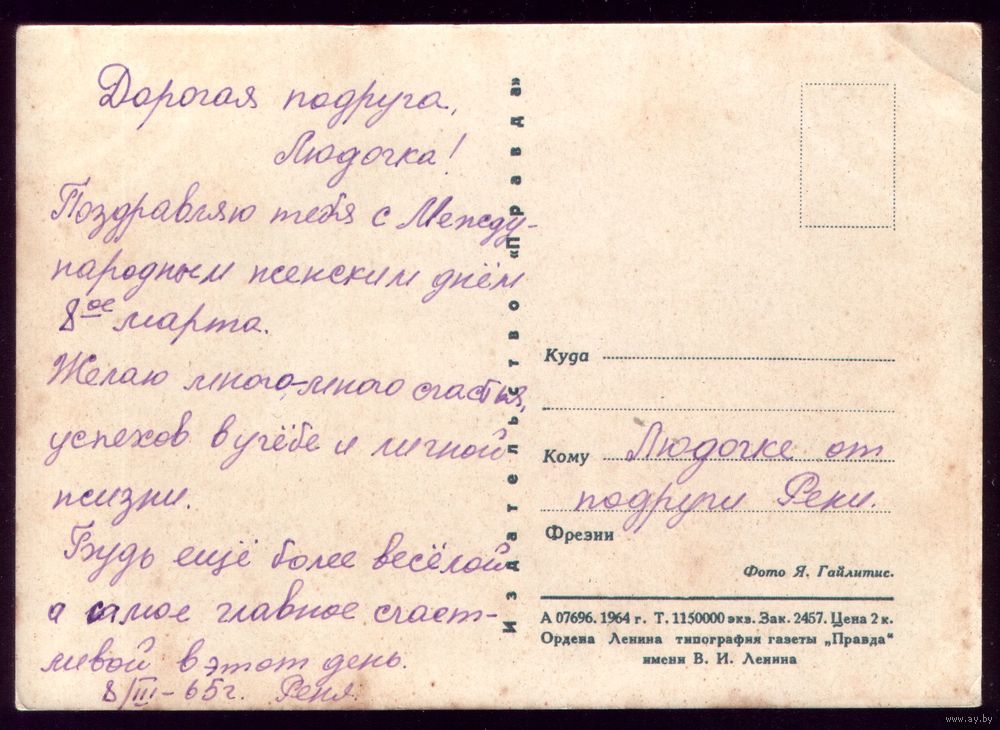 Дорогая подруга,
Людочка!
Поздравляю тебя с Между-
народным женским днём
8ое марта.
Желаю много-много счастья,
успехов в учёбе и личной
жизни.
Будь ещё более весёлой
а самое главное счаст-
ливой в этот день.
8/III-65г. Реня.
Издательство «Правда»
Куда
Кому Людочке от
подруги Рени.
Фрезии
Фото Я. Гайлитис.
А 07696. 1964 г. Т. 1150000 экз. Зак. 2457. Цена 2 к.
Ордена Ленина типография газеты „Правда“
имени В. И. Ленина
www.ay.by